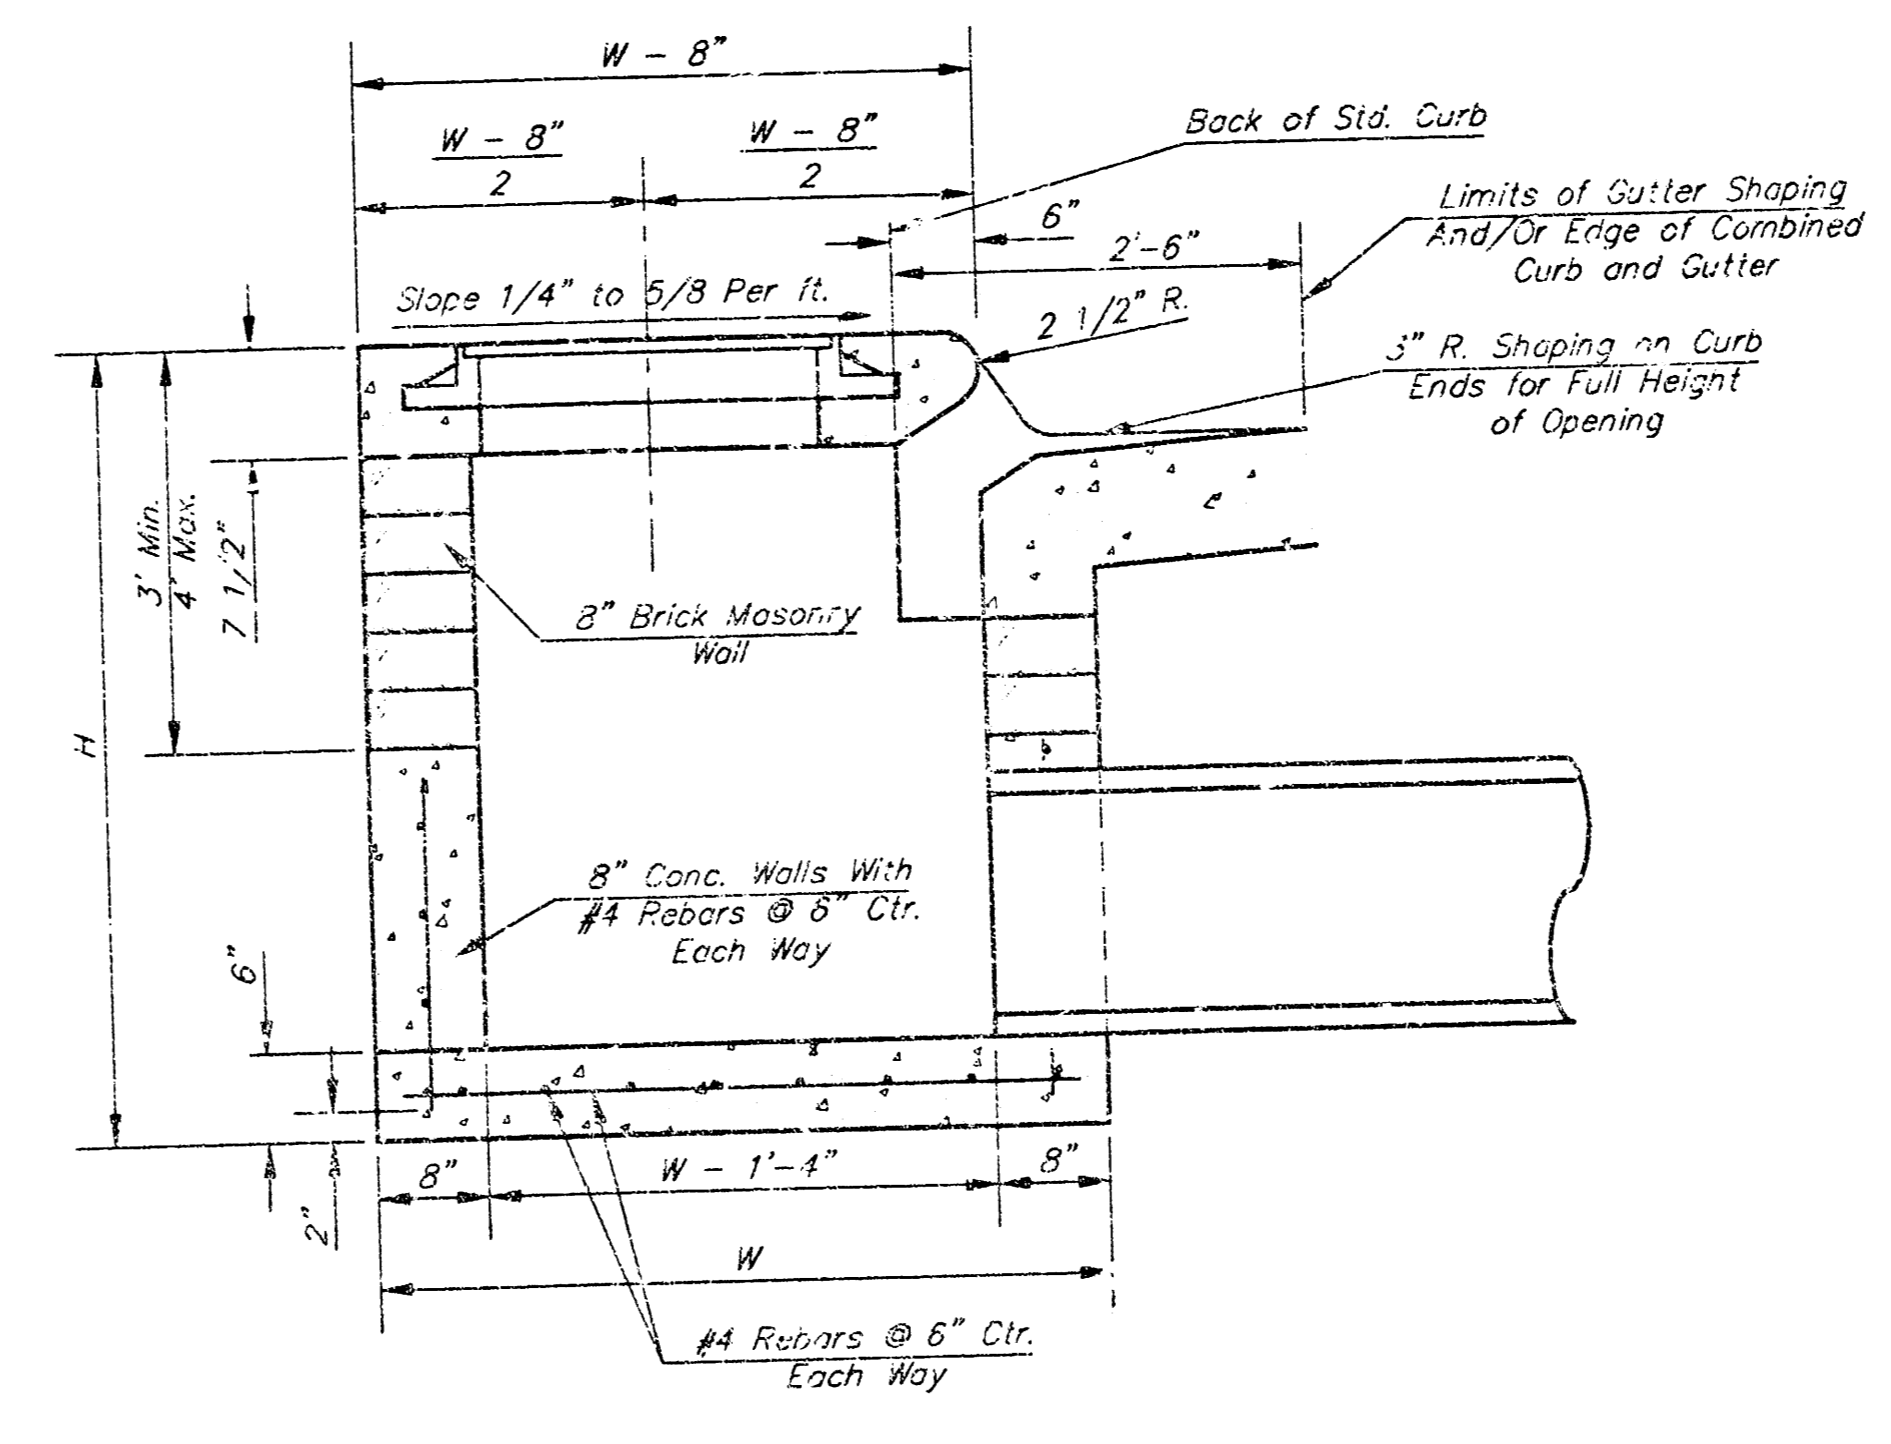 W - 8"
W - 8"
2
W - 8"
2
Back of Std. Curb
6"
2'-6"
Limits of Gutter Shaping
And/Or Edge of Combined
Curb and Gutter
Slope 1/4" to 5/8 Per ft.
2 1/2" R.
3" R. Shaping on Curb
Ends for Full Height
of Opening
3' Min.
4' Max.
7 1/2"
8" Brick Masonry
Wall
H
8" Conc. Walls With
#4 Rebars @ 6" Ctr.
Each Way
6"
2"
8"
W - 1'-4"
8"
W
#4 Rebars @ 6" Ctr.
Each Way